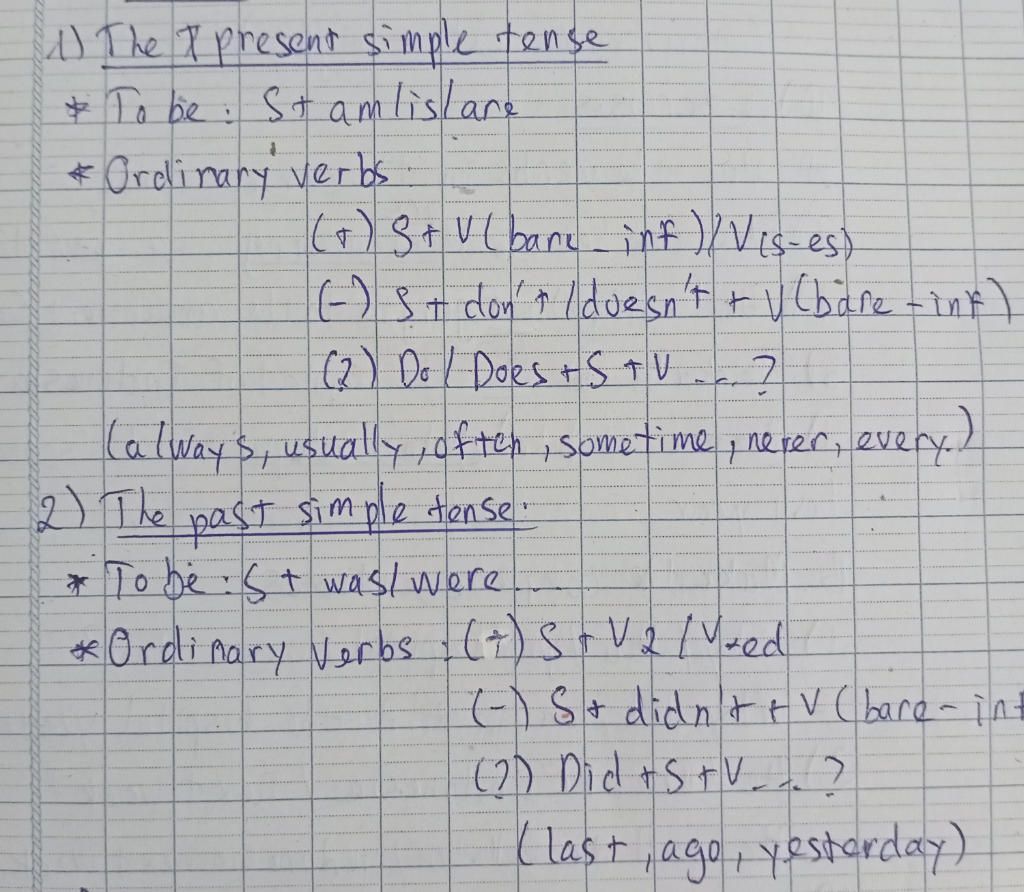 1) The present simple tense
* To be : S + am/is/are
* Ordinary verbs :
(+) S + V (bare - inf) / V(s-es)
(-) S + don't / doesn't + V (bare - inf)
(?) Do / Does + S + V ... ?
(always, usually, often, sometime, never, every.)
2) The past simple tense :
* To be : S + was/were ...
* Ordinary verbs : (+) S + V2 / V-ed
(-) S + didn't + V (bare - inf
(?) Did + S + V ... ?
(last, ago, yesterday)